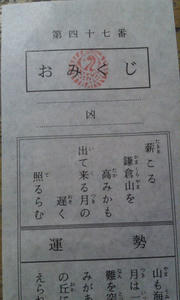 第四十七番
おみくじ
凶
薪こる
鎌倉山を
高みかも
出て来る月の
遅く
照るらむ
運勢
山も海
月は一
難を
みがあ
の丘に
えられ